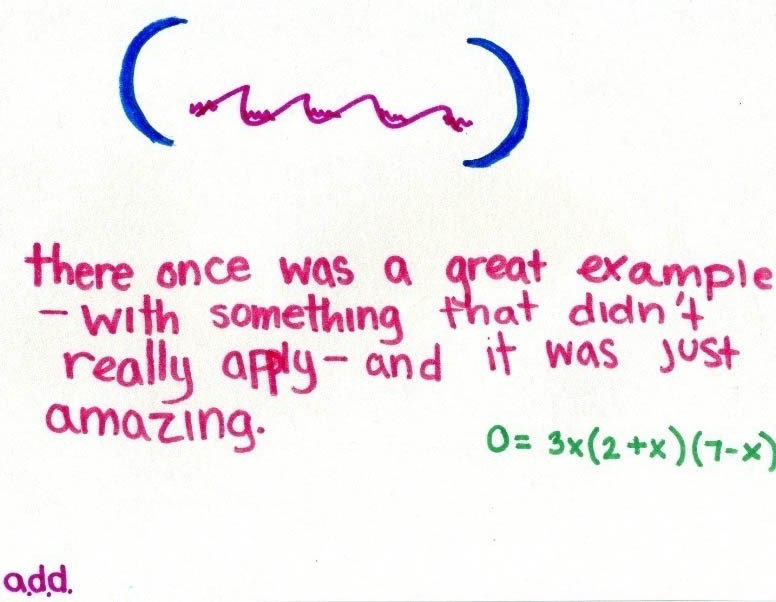 there once was a great example
- with something that didn't
really apply - and it was just
amazing.
0= 3x(2+x)(7-x)
a.d.d.